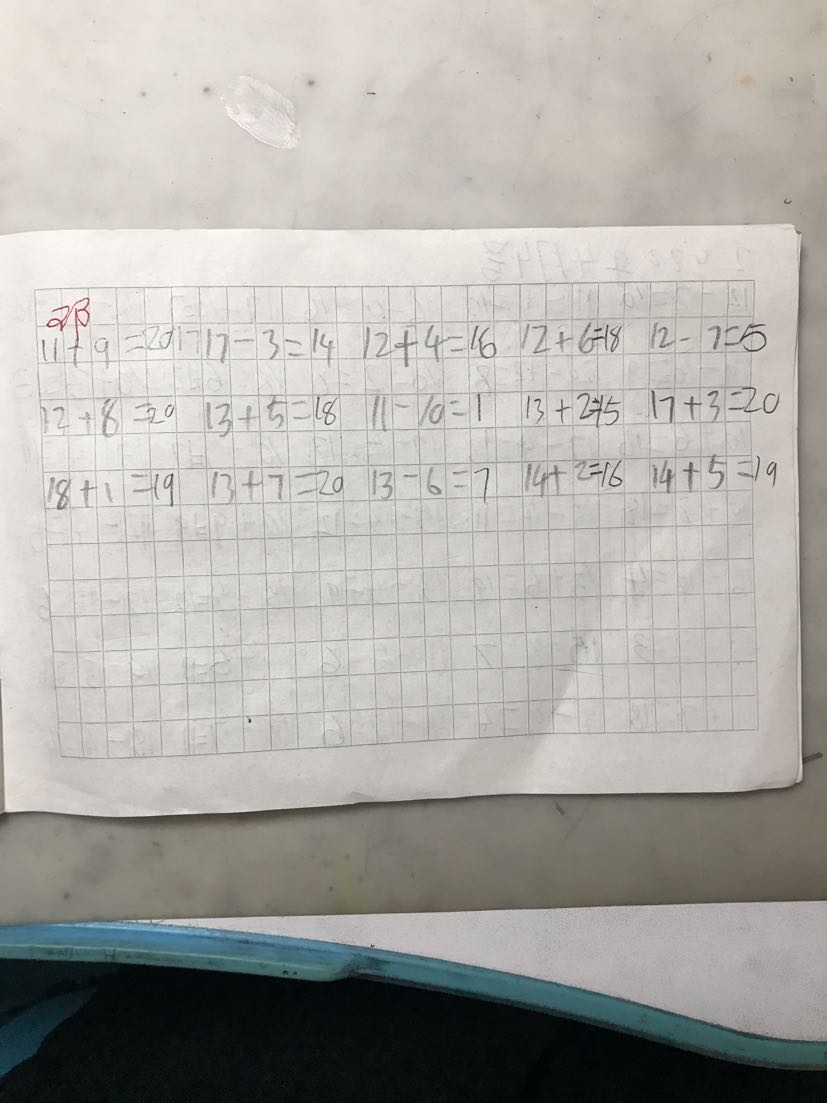 11+9=20 17 17-3=14 12+4=16 12+6=18 12-7=5
12+8=20 13+5=18 11-10=1 13+2=15 17+3=20
18+1=19 13+7=20 13-6=7 14+2=16 14+5=19